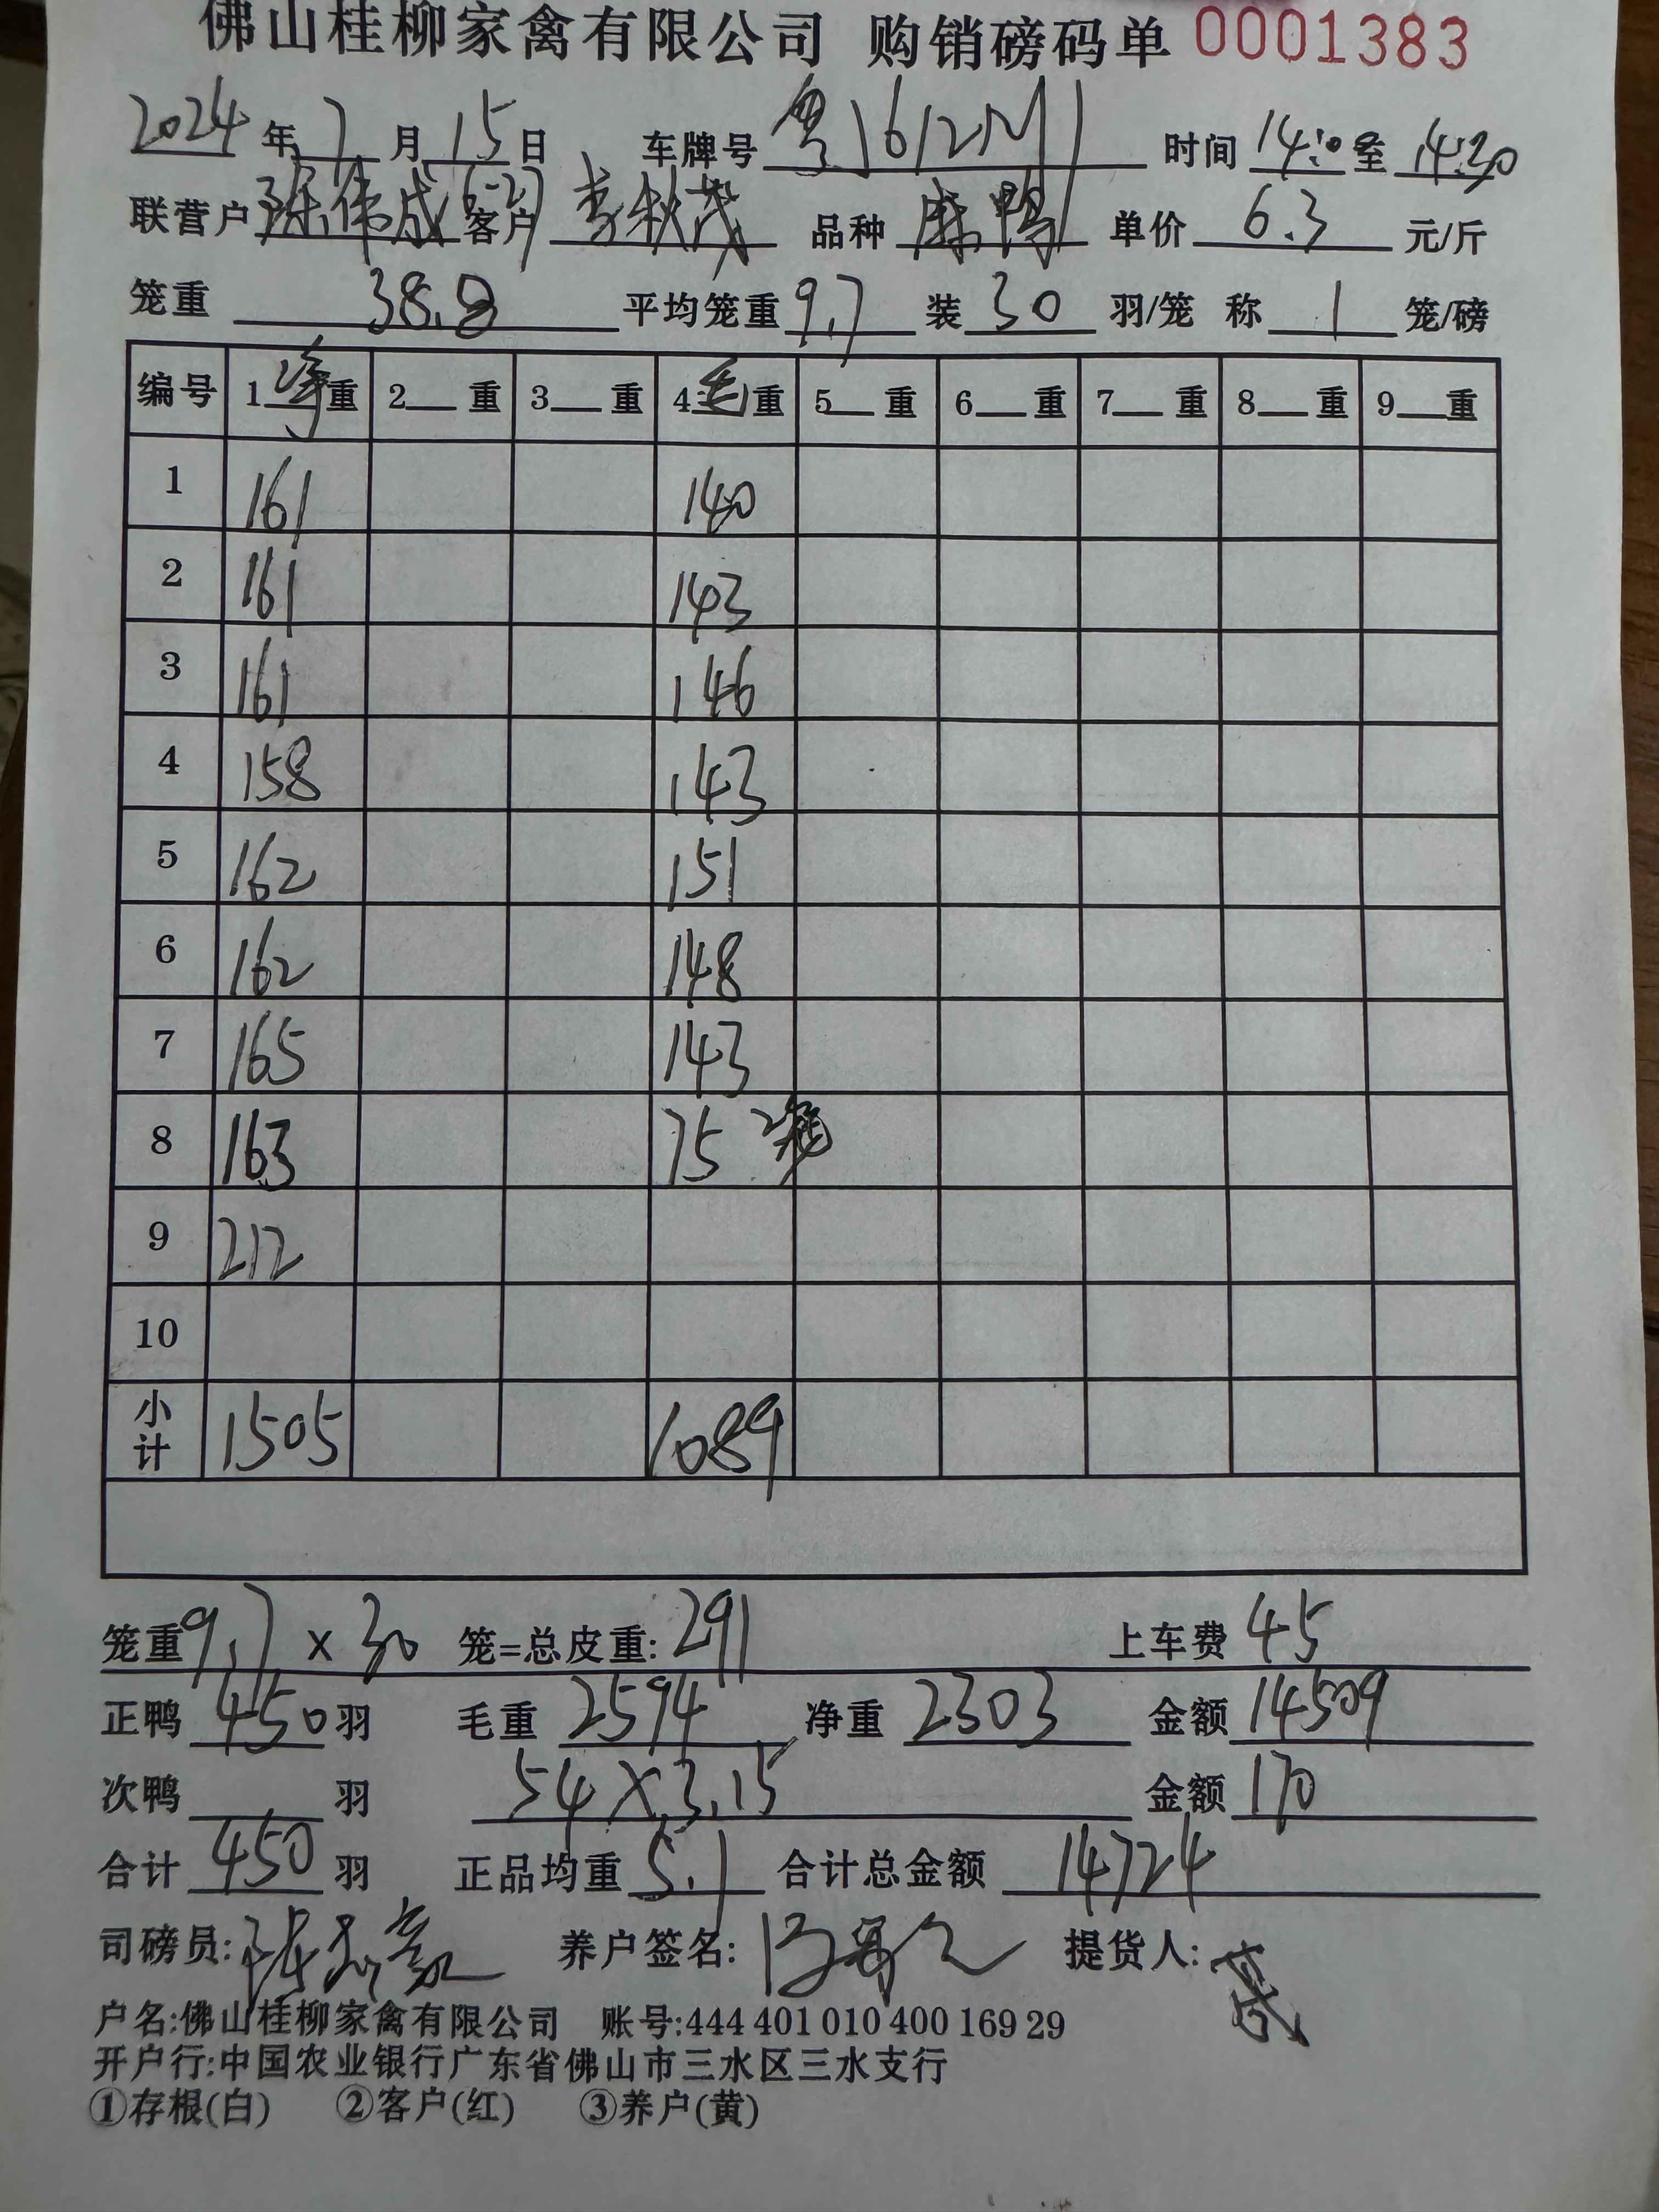 佛山桂柳家禽有限公司 购销磅码单 0001383
2024年7月15日 车牌号粤J612M1 时间14:10至14:30
联营户 陈伟成(6-27) 客户 李秋茂 品种 麻鸭 单价 6.3 元/斤
笼重 38.8 平均笼重 9.7 装 30 羽/笼 称 1 笼/磅
编号 1净重 2重 3重 4毛重 5重 6重 7重 8重 9重
1 161 140
2 161 143
3 161 146
4 158 143
5 162 151
6 162 148
7 165 143
8 163 75
9 212
10
小计 1505 1089
笼重9.7 x 30 笼=总皮重:291 上车费 45
正鸭 450 羽 毛重 2594 净重 2303 金额 14509
次鸭 羽 54 x 3.15 金额 170
合计 450 羽 正品均重 5.1 合计总金额 14724
司磅员: 养户签名: 提货人:
户名:佛山桂柳家禽有限公司 账号:444 401 010 400 169 29
开户行:中国农业银行广东省佛山市三水区三水支行
①存根(白) ②客户(红) ③养户(黄)